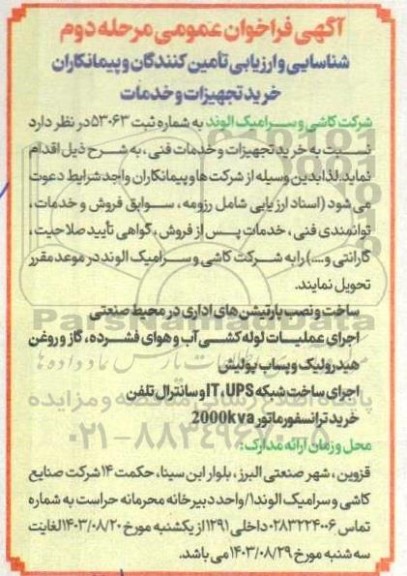 آگهی فراخوان عمومی مرحله دوم
شناسایی و ارزیابی تأمین کنندگان و پیمانکاران
خرید تجهیزات و خدمات
شرکت کاشی و سرامیک الوند به شماره ثبت ۵۳۰۶۳ در نظر دارد
نسبت به خرید تجهیزات و خدمات فنی، به شرح ذیل اقدام
نماید. لذا بدین وسیله از شرکت ها و پیمانکاران واجد شرایط دعوت
می شود (اسناد ارزیابی شامل رزومه، سوابق فروش و خدمات،
توانمندی فنی، خدمات پس از فروش، گواهی تأیید صلاحیت،
گارانتی و....) را به شرکت کاشی و سرامیک الوند در موعد مقرر
تحویل نمایند.
ساخت و نصب پارتیشن های اداری در محیط صنعتی
اجرای عملیات لوله کشی آب و هوای فشرده، گاز و روغن
هیدرولیک و پساب پولیش
اجرای ساخت شبکه IT، UPS و سانترال تلفن
خرید ترانسفورماتور 2000kva
محل و زمان ارائه مدارک:
قزوین، شهر صنعتی البرز، بلوار ابن سینا، حکمت ۱۴ شرکت صنایع
کاشی و سرامیک الوند/۱ واحد دبیرخانه محرمانه حراست به شماره
تماس ۰۲۸۳۲۲۴۰۰۶ داخلی ۱۲۹۱ از یکشنبه مورخ ۱۴۰۳/۰۸/۲۰ لغایت
سه شنبه مورخ ۱۴۰۳/۰۸/۲۹ می باشد.